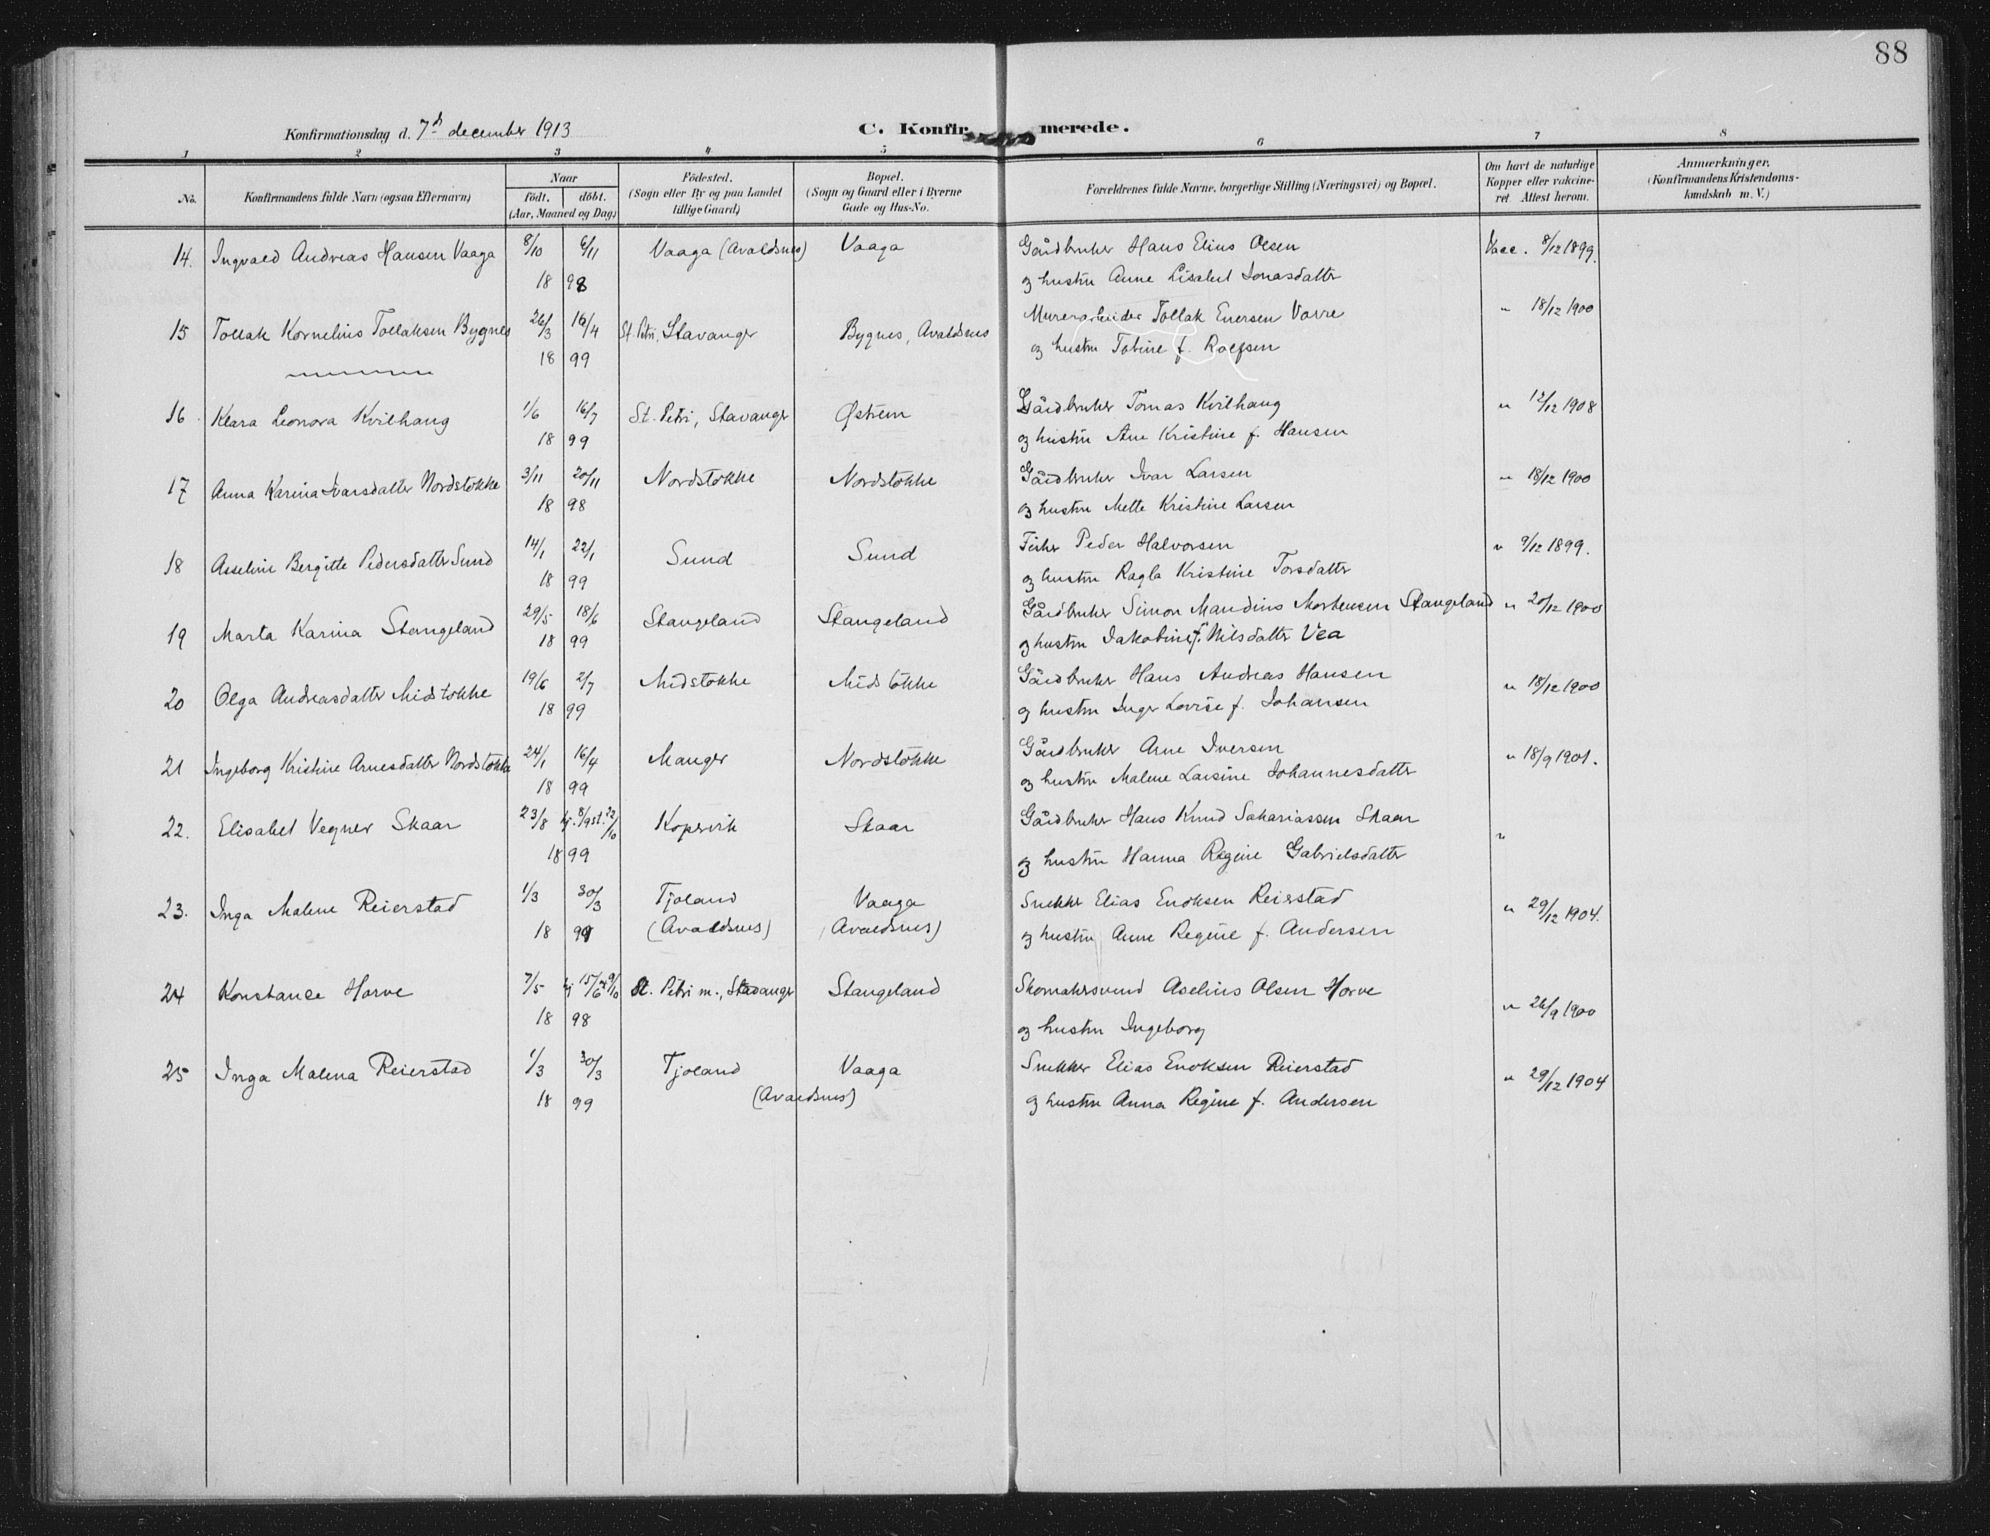 88
Konfirmationsdag d. 7d december 1913 C. Konfirmerede.
1 2 3 4 5 6 7 8
No. Konfirmandens fulde Navn (ogsaa Efternavn) Naar födt. döbt. (Aar, Maaned og Dag) Födested. (Sogn eller By og paa Landet tillige Gaard) Bopæl. (Sogn og Gaard eller i Byerne Gade og Hus-No. Forældrenes fulde Navne, borgerlige Stilling (Næringsvei) og Bopæl. Om havt de naturlige Kopper eller vakcineret Attest herom. Anmærkninger. (Konfirmandens Kristendomskundskab m. V.)
14. Ingvald Andreas Hansen Vaaga 8/10 6/11 Vaaga (Avaldsnes) Vaaga Gårdbruker Hans Elius Olsen Vacc. 8/12 1899.
18 98 og hustru Anne Lisabet Jonasdatter
15 Tollak Kornelius Tollaksen Bygnes 26/3 16/4 St. Petri, Stavanger Bygnes, Avaldsnes Murerarbeider Tollak Enersen Vavre " 18/12 1900
18 99 og hustru Tobine f. Roefsen
16 Klara Leonora Kvilhaug 1/6 16/7 St. Petri, Stavanger Østrem Gårdbruker Tomas Kvilhaug " 12/12 1908
18 99 og hustru Ane Kristine f. Hansen
17 Anna Karina Ivarsdatter Nordstokke 3/11 20/11 Nordstokke Nordstokke Gårdbruker Ivar Larsen " 18/12 1900
18 98 og hustru Mette Kristine Larsen
18 Asseline Bergitte Pedersdatter Sund 14/1 22/1 Sund Sund Fisker Peder Halvorsen " 9/12 1899.
18 99 og hustru Ragla Kristine Torsdatter
19 Marta Karina Stangeland 29/5 18/6 Stangeland Stangeland Gårdbruker Simon Maudius Mortensen Stangeland " 20/12 1900
18 99 og hustru Jakobine f. Nilsdatter Vea
20 Olga Andreasdatter Midstokke 19/6 2/7 Midstokke Midstokke Gårdbruker Hans Andreas Hansen " 18/12 1900
18 99 og hustru Inger Lovise f. Johansen
21 Ingeborg Kristine Arnesdatter Nordstokke 24/1 16/4 Manger Nordstokke Gårdbruker Arne Iversen " 18/9 1901.
18 99 og hustru Malene Larsine Johannesdatter
22. Elisabet Vegner Skaar 23/8 hj. 8/9 st. 22/10 Kopervik Skaar Gårdbruker Hans Knud Sakariassen Skaar "
18 99 og hustru Hanna Regine Gabrielsdatter
23. Inga Malene Reierstad 1/3 30/3 Tjoland Vaaga Snekker Elias Enoksen Reierstad " 29/12 1904.
18 99 (Avaldsnes) (Avaldsnes) og hustru Anne Regine f. Andersen
24 Konstanse Horve 7/5 hj 15/6 st 9/10 St. Petri m., Stavanger Stangeland Skomakersvend Aselius Olsen Horve " 26/9 1900
18 98 og hustru Ingeborg
25 Inga Malena Reierstad 1/3 30/3 Tjoland Vaaga Snekker Elias Enoksen Reierstad " 29/12 1904
18 99 (Avaldsnes) og hustru Anna Regine f. Andersen